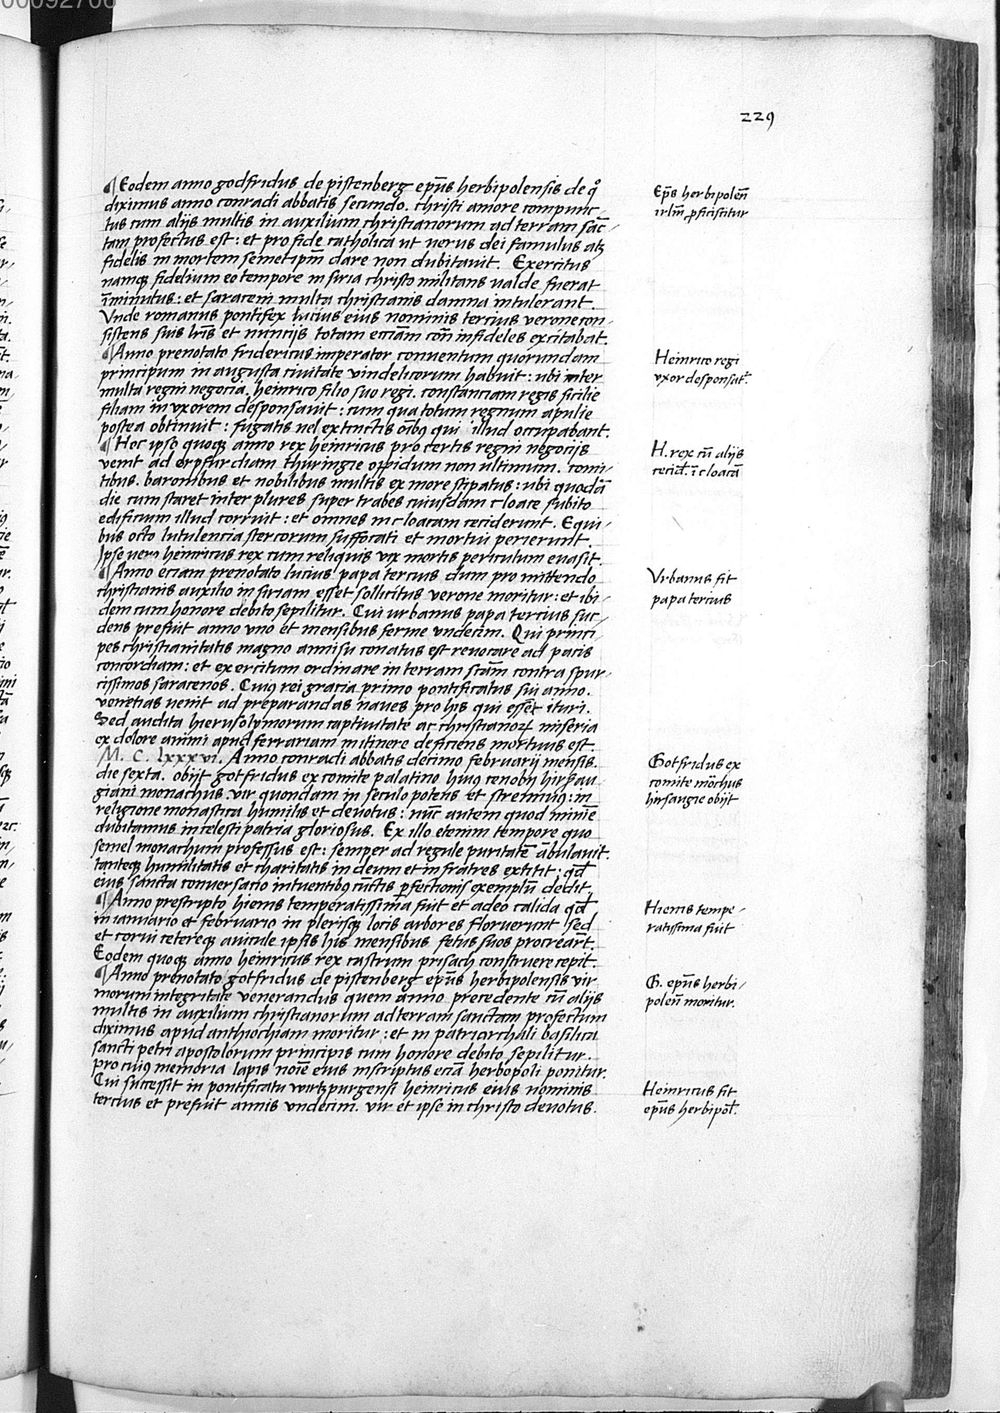 229
¶Eodem anno godfridus de pistenberg ep̄us herbipolensis de q°
diximus anno conradi abbatis secundo. christi amore compunc-
tus cum alijs multis in auxilium christianorum ad terram sāc-
tam profectus est: et pro fide catholica ut uerus dei famulus atq₃
fidelis in mortem semetip̄m dare non dubitauit. Exercitus
namq₃ fidelium eo tempore in siria christo militans ualde fuerat
īminutus: et saraceni multa christianis damna intulerant.
Vnde romanus pontifex lucius eius nominis tercius verone con-
sistens suis lr̄is et nuncijs totam ecc̄iam con̄ infideles excitabat.
¶Anno prenotato fridericus imperator conuentum quorundam
principum in augusta ciuitate vindelicorum habuit: ubi inter
multa regni negocia. heinrico filio suo regi. constanciam regis sicilie
filiam in vxorem desponsauit: cum qua totum regnum apulie
postea obtinuit: fugatis uel extinctis oībus qui illud occupabant.
¶Hoc ipso quoq₃ anno rex heinricus pro certis regni negocijs
venit ad erpfurdiam thuringie oppidum non ultimum. comi-
tibus. baronibus et nobilibus multis ex more stipatus: ubi quodā
die cum staret inter plures super trabes cuiusdam cloace subito
edificium illud corruit: et omnes in cloacam ceciderunt. E qui-
bus octo lutulencia stercorum suffocati et mortui perierunt.
Ipse uero heinricus rex cum reliquis vix mortis periculum euasit.
¶Anno eciam prenotato lucius papa tercius dum pro mittendo
christianis auxilio in siriam esset sollicitus verone moritur: et ibi-
dem cum honore debito sepilitur. Cui urbanus papa tercius suc-
dens prefuit anno vno et mensibus ferme vndecim. Qui princi-
pes christianitatis magno annisu conatus est reuocare ad pacis
concordiam: et exercitum ordinare in terram sc̄am contra spur-
cissimos saracenos. Cuius rei gracia primo pontificatus sui anno.
venetias uenit ad preparandas naues pro his qui essent ituri.
Sed audita hierusolymorum captiuitate ac christianoꝝ miseria
ex dolore animi apud ferrariam in itinere deficiens mortuus est.
M. C. lxxxvi. Anno conradi abbatis decimo februarij mensis.
die sexta. obijt gotfridus ex comite palatino huius cenobij hirsau-
giani monachus. vir quondam in seculo potens et strennuus: in
religione monastica humilis et deuotus: nūc autem quod minīe
dubitamus in celesti patria gloriosus. Ex illo etenim tempore quo
semel monachum professus est: semper ad regule puritatē ābulauit.
tanteq₃ humilitatis et charitatis in deum et in fratres extitit: qd̄
eius sancta conuersacio intuentibus cūctis ꝑfectionis exemplū dedit.
¶Anno prescripto hiems temperatissima fuit et adeo calida qd̄
in ianuario et februario in plerisq₃ locis arbores floruerunt sed
et corui cetereq₃ auicule ipsis his mensibus fetus suos procreārt.
Eodem quoq₃ anno heinricus rex castrum prisach construere cepit.
¶Anno prenotato gotfridus de pistenberg ep̄us herbipolensis vir
morum integritate venerandus quem anno precedente cū alijs
multis in auxilium christianorum ad terram sanctam profectum
diximus apud anthiochiam moritur: et in patriarchali basilica
sancti petri apostolorum principis cum honore debito sepilitur.
pro cuius memoria lapis noīe eius inscriptus eciā herbopoli ponitur.
Cui successit in pontificatu wirtzpurgensi heinricus eius nominis
tercius et prefuit annis vndecim. vir et ipse in christo deuotus.
Ep̄s herbipoleñ
irlm̄ ꝓficiscitur
Heinrico regi
vxor desponsat̄.
H. rex cū alijs
cecid̄. ī cloacā
Vrbanus fit
papa tercius
Gotfridus ex
comite mōchus
hirsaugie obijt
Hiems tempe-
ratissima fuit
G. ep̄us herbi-
poleñ moritur.
Heinricus fit
ep̄us herbipōl.